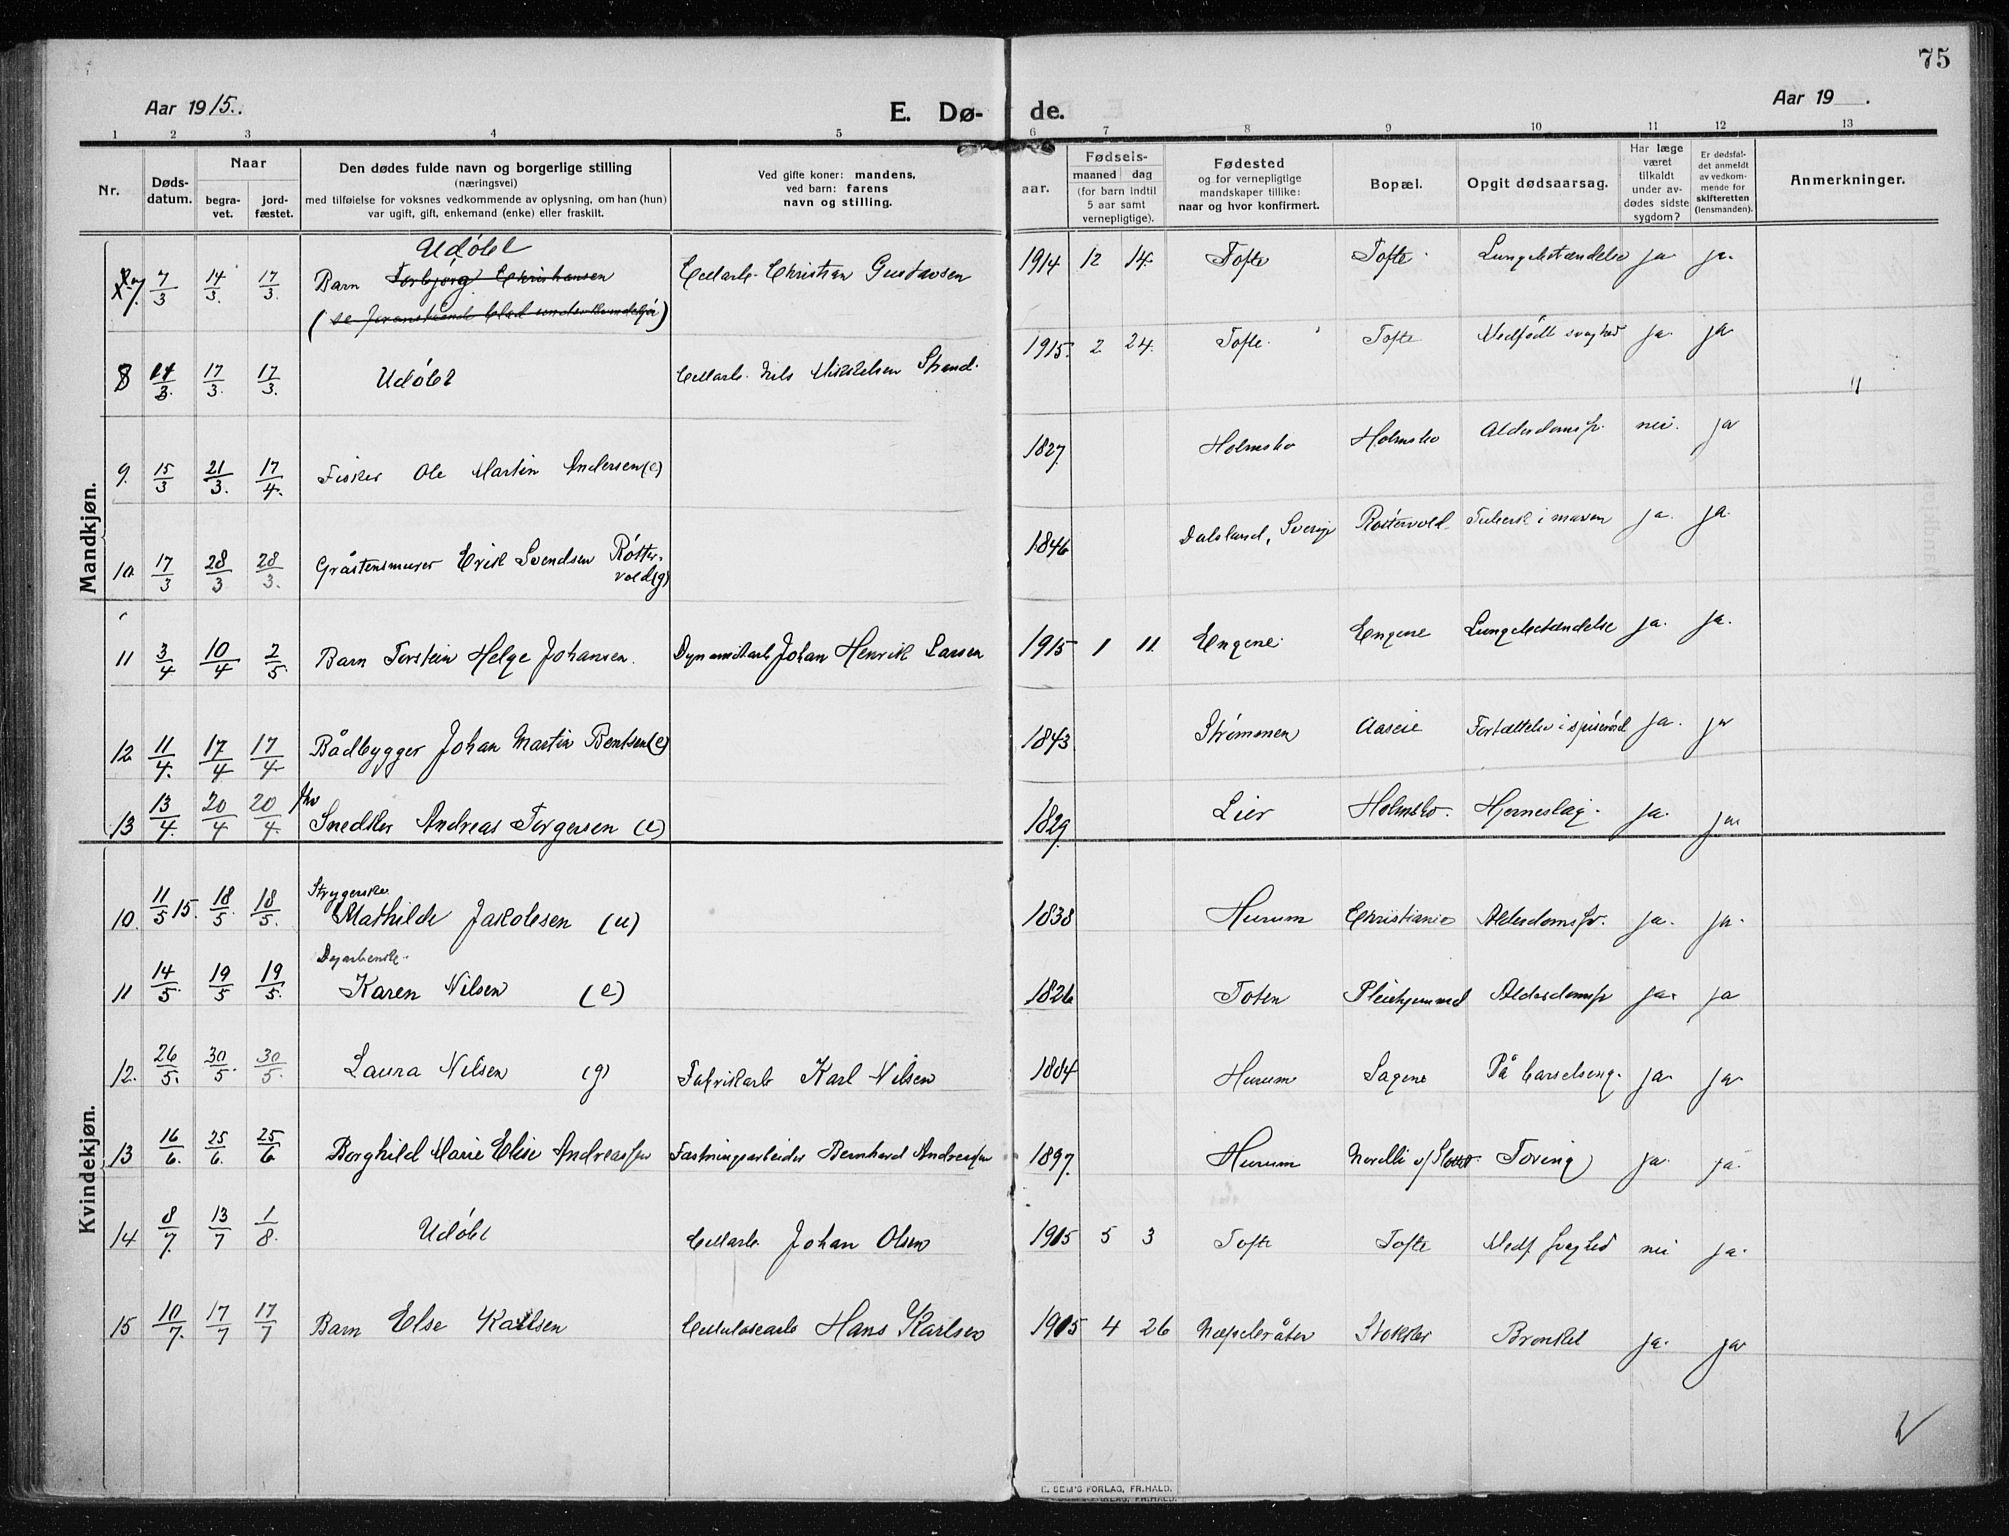 75
Aar 1915.
E. Dø- de.
Aar 19 .
1 2 3 4 5 6 7 8 9 10 11 12 13
Nr.
Døds-
datum.
Naar
begra-
vet.
jord-
fæstet.
Den dødes fulde navn og borgerlige stilling
(næringsvei)
med tilføielse for voksnes vedkommende av oplysning, om han (hun)
var ugift, gift, enkemand (enke) eller fraskilt.
Ved gifte koner: mandens,
ved barn: farens
navn og stilling.
aar.
Fødsels-
maaned dag
(for barn indtil
5 aar samt
vernepligtige).
Fødested
og for vernepligtige
mandskaper tillike:
naar og hvor konfirmert.
Bopæl.
Opgit dødsaarsag.
Har læge
været
tilkaldt
under av-
dødes sidste
sygdom?
Er dødsfal-
det anmeldt
av vedkom-
mende for
skifteretten
(lensmanden).
Anmerkninger.
Mandkjøn.
Udøbt
7. 7/3 14/3. 17/3. Barn Torbjørg Christiansen Cellarb. Christian Gustavsen 1914 12 14. Tofte Tofte. Lungebetændelse ja ja.
8 14/3. 17/3. 17/3. Udøbt Cellarb. Nils Mikkelsen Strand. 1915. 2 24. Tofte. Tofte Medfødt svaghed ja. ja
"
9. 15/3 21/3. 17/4. Fisker Ole Martin Andersen (e) 1827. Holmsbo Holmsbo Alderdomssv. nei. ja
10. 17/3 28/3 28/3. Gråstensmurer Erik Svendsen Røtter-
vold (g) 1846 Dalsland, Sverige Røttervold Tuberk i maven ja. ja.
11 3/4 10/4 2/5 Barn Torstein Helge Johansen. Dynamitarb Johan Henrik Larsen 1915 1 11. Engene Engene Lungebetændelse ja. ja.
12 11/4. 17/4 17/4 Bådbygger Johan Martin Bentsen (e) 1843 Strømmen Aaseie Fortættelse i spiserød ja. ja
13 13/4. 20/4 20/4. Snedker Andreas Torgersen (e) 1829. Lier Holmsbo. Hjerneslag. ja. ja
Kvindekjøn.
Strygerske
10. 11/5 15. 18/5. 18/5. Mathilde Jakobsen (u) 1838 Hurum Christiania Alderdomssv. ja. ja.
Dagarbeidsk.
11 14/5. 19/5 19/5. Karen Nilsen (e) 1826 Toten Pleiehjemmet Alderdomssv ja. ja
12. 26/5. 30/5. 30/5. Laura Nilsen (g) Fabrikarb Karl Nilsen 1884 Hurum Sagene På barselseng. ja. ja.
13 16/6. 25/6. 25/6 Borghild Marie Elise Andreassen Fæstningsarbeider Bernhard Andreassen 1897. Hurum Tæring ja. ja.
14 8/7. 13/7 1/8. Udøbt Cellarb. Johan Olsen 1915 5 3 Tofte Tofte Medf svaghed nei ja.
15 10/7. 17/7 17/7 Barn Else Karlsen Cellulosearb Hans Karlsen 1915 4 26 Næpseråten Stokker Bronkit ja. ja
E. SEM'S FORLAG, FR.HALD.